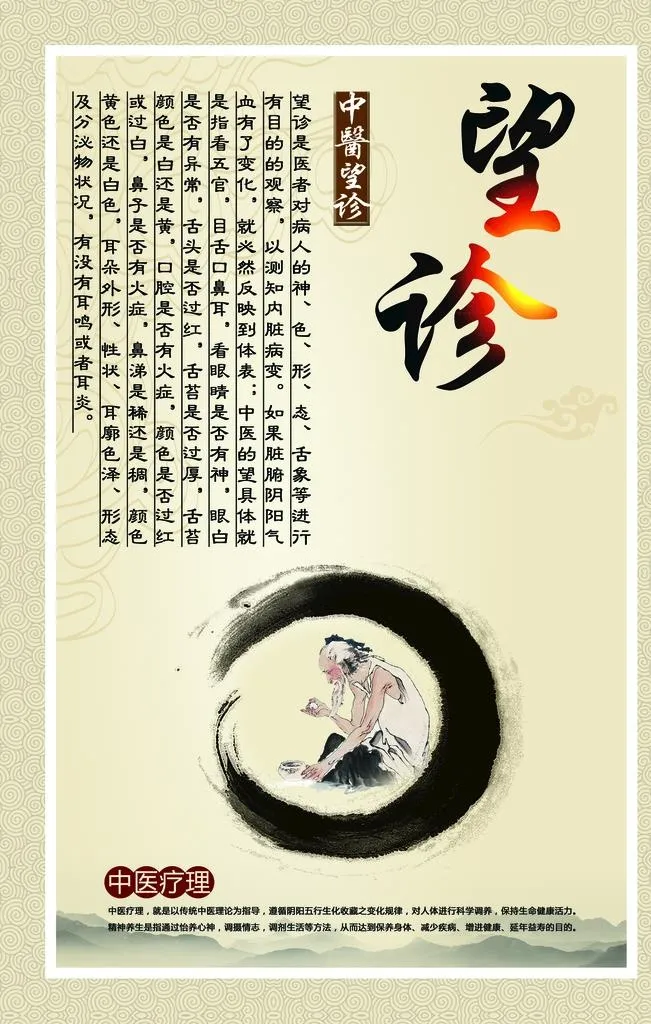 望诊
中醫望诊
望诊是医者对病人的神、色、形、态、舌象等进行
有目的的观察，以测知内脏病变。如果脏腑阴阳气
血有了变化，就必然反映到体表；中医的望具体就
是指看五官，目舌口鼻耳，看眼睛是否有神，眼白
是否有异常，舌头是否过红，舌苔是否过厚，舌苔
颜色是白还是黄，口腔是否有火症，颜色是否过红
或过白，鼻子是否有火症，鼻涕是稀还是稠，颜色
黄色还是白色，耳朵外形、性状、耳廓色泽、形态
及分泌物状况，有没有耳鸣或者耳炎。
中医疗理
中医疗理，就是以传统中医理论为指导，遵循阴阳五行生化收藏之变化规律，对人体进行科学调养，保持生命健康活力。
精神养生是指通过怡养心神，调摄情志，调剂生活等方法，从而达到保养身体、减少疾病、增进健康、延年益寿的目的。